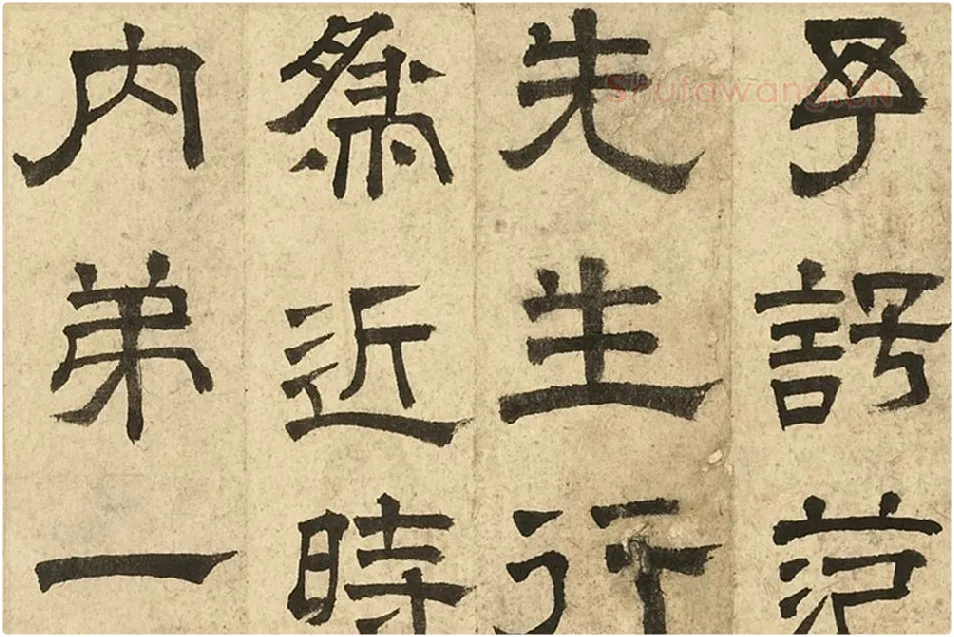 予范
先生行
近時
内弟一
Shufawang.CN